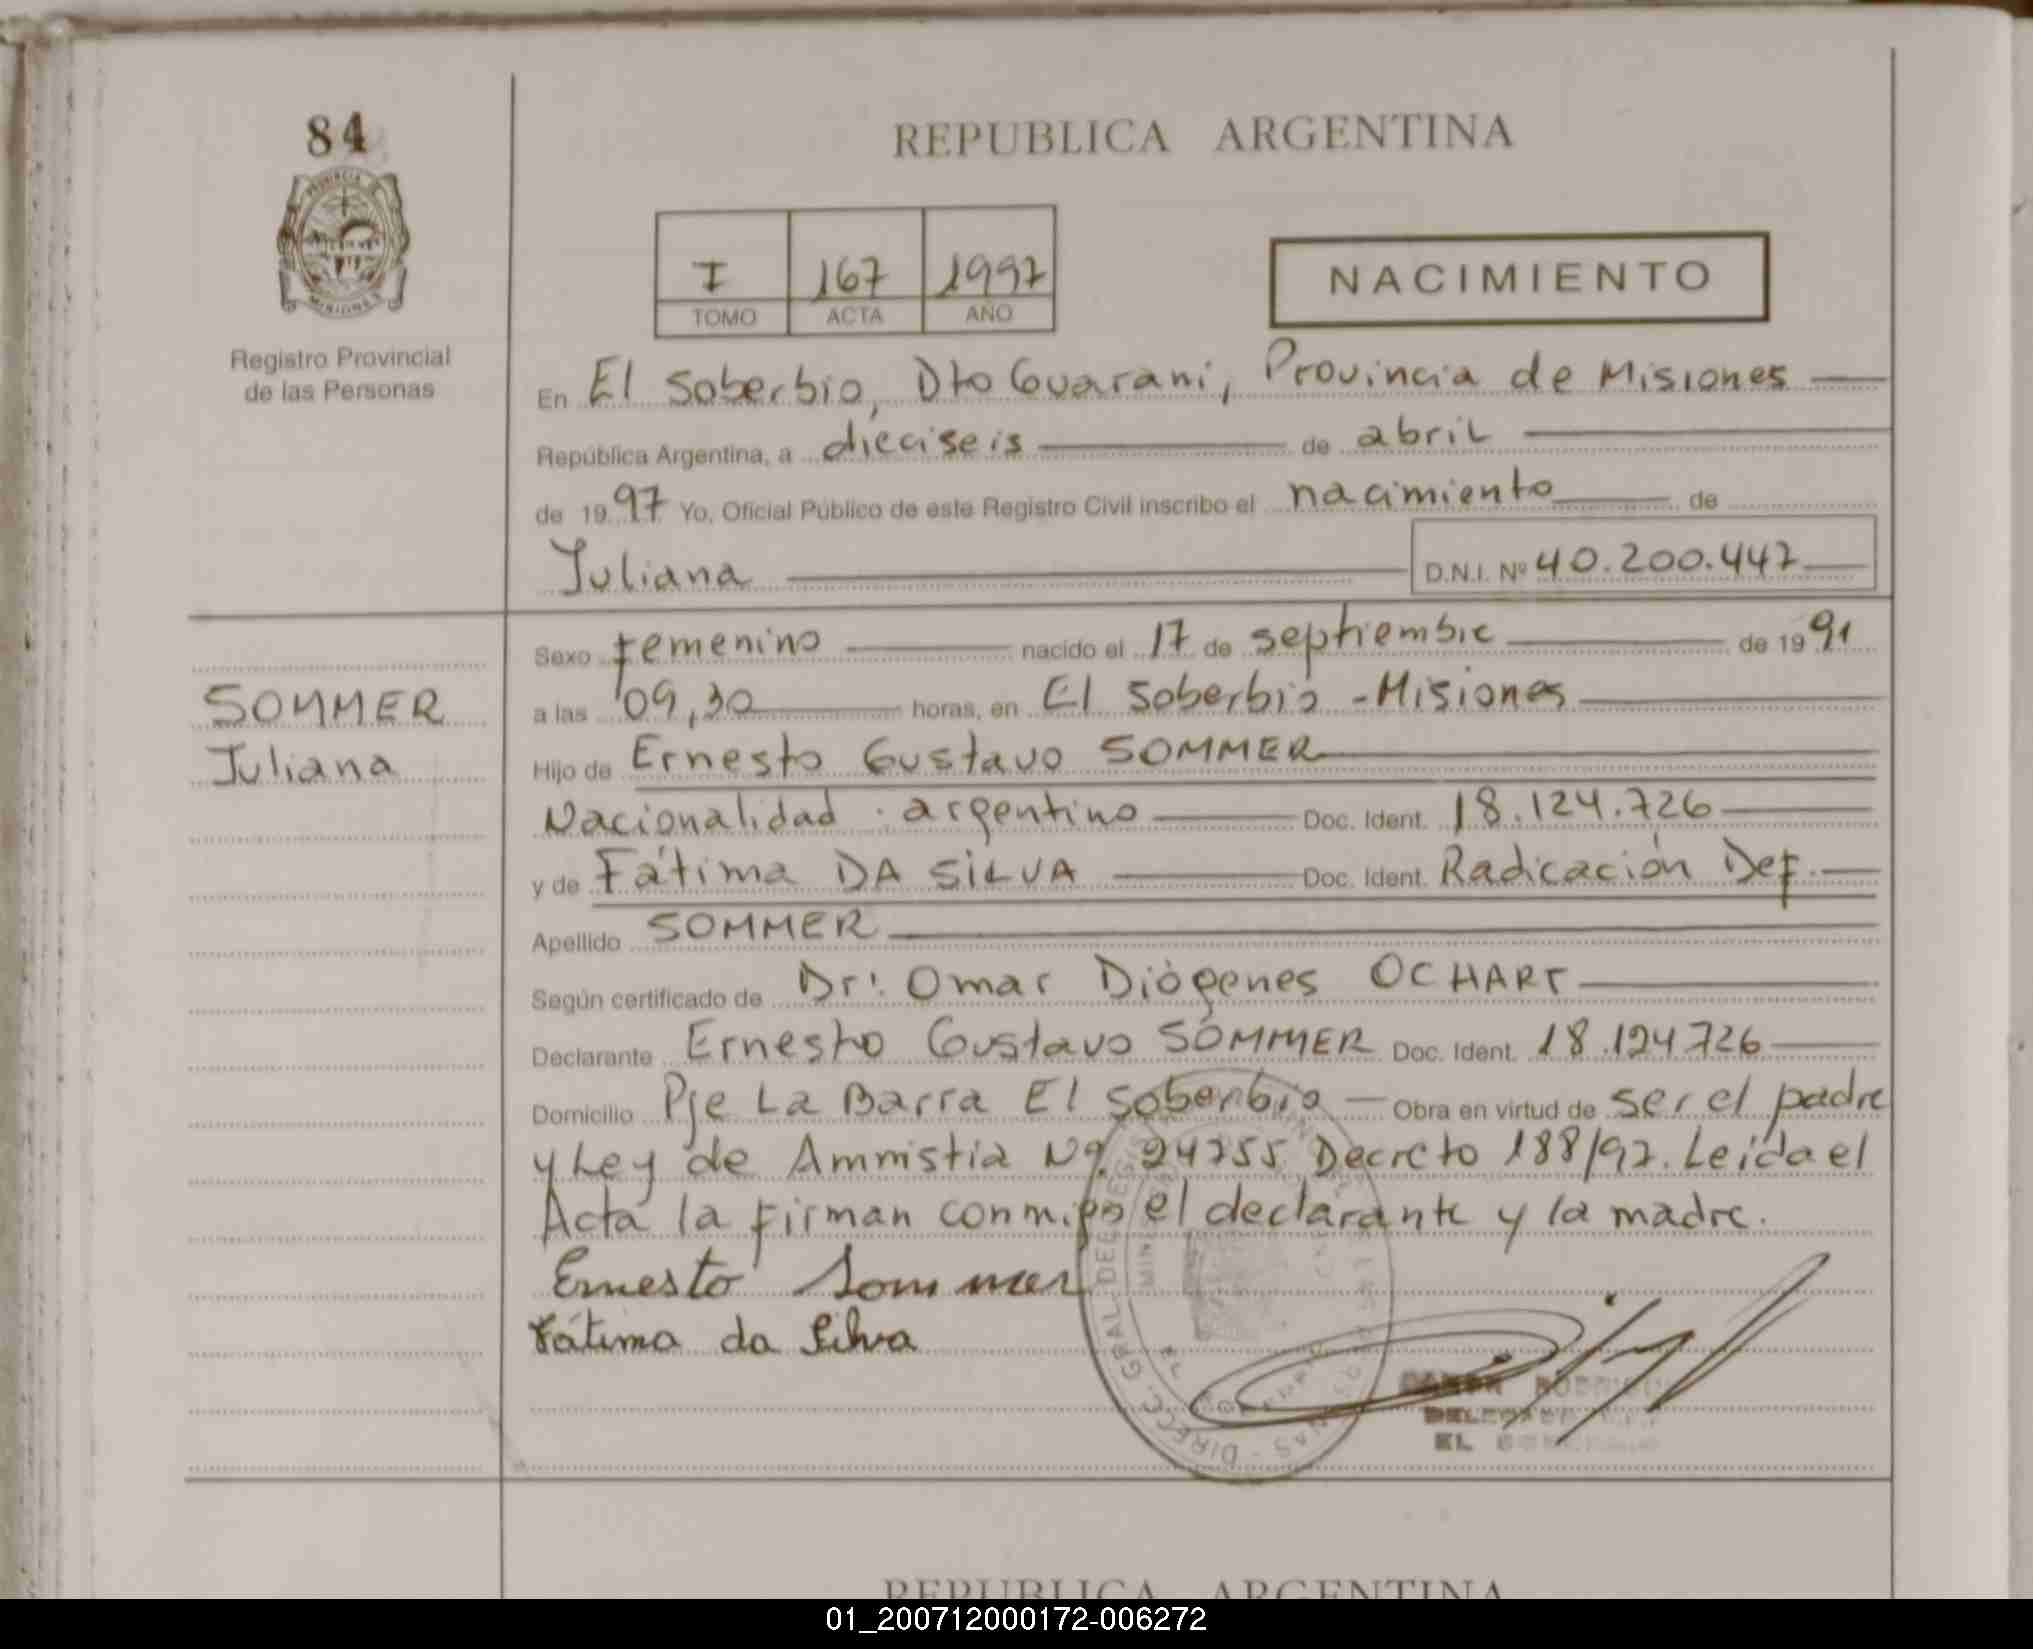 84
REPUBLICA ARGENTINA
PROVINCIA D
MISIONES
I 167 1997
TOMO ACTA AÑO
NACIMIENTO
Registro Provincial
de las Personas
En El Soberbio, Dto Guarani, Provincia de Misiones
República Argentina, a dieciseis de abril
de 1997 Yo, Oficial Público de este Registro Civil inscribo el nacimiento de
Juliana D.N.I. Nº 40.200.447
SOMMER
Juliana
Sexo femenino nacido el 17 de septiembre de 1991
a las 09,30 horas, en El Soberbio - Misiones
Hijo de Ernesto Gustavo SOMMER
Nacionalidad argentino Doc. Ident. 18.124.726
y de Fátima DA SILVA Doc. Ident. Radicación Def.
Apellido SOMMER
Según certificado de Dr: Omar Diógenes OCHART
Declarante Ernesto Gustavo SOMMER Doc. Ident. 18.124726
Domicilio Pje La Barra El Soberbio — Obra en virtud de ser el padre
y Ley de Amnistia Nº 24755 Decreto 188/97. Leida el
Acta la firman conmigo el declarante y la madre.
Ernesto Sommer
Fátima da Silva
DIRECC. GRAL DEL
EL
REPUBLICA ARGENTINA
01_200712000172-006272